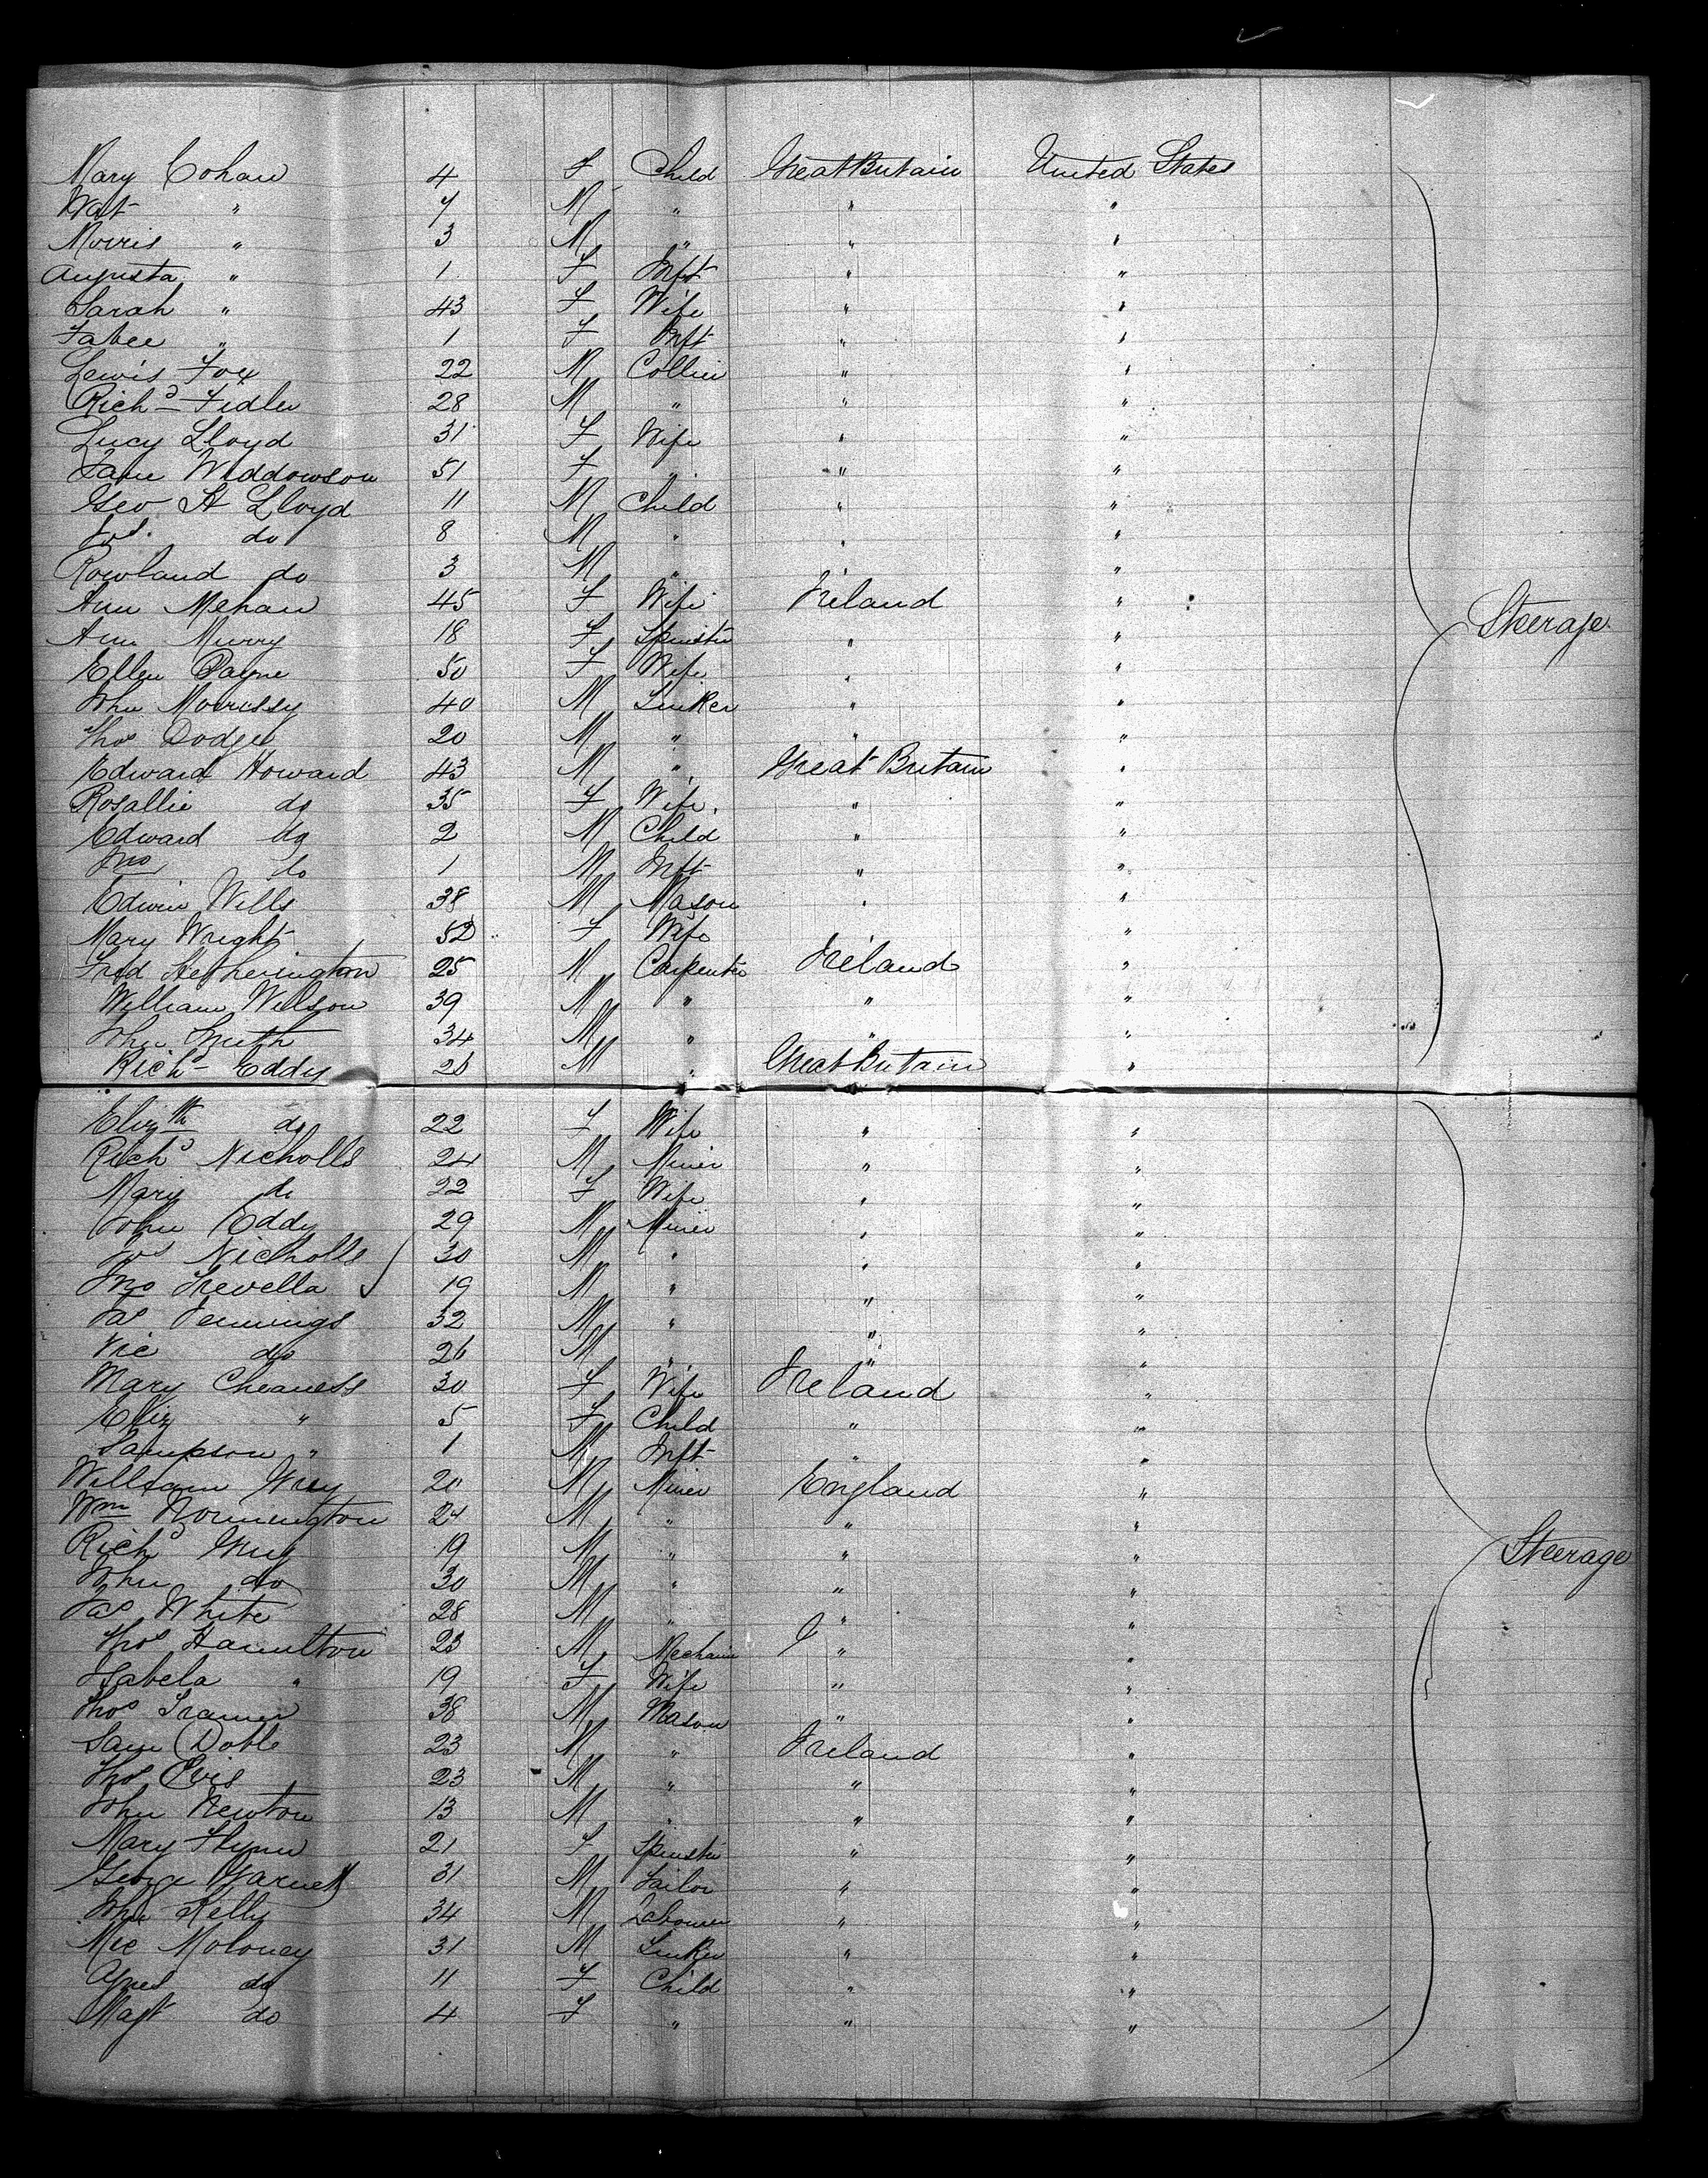 Mary Cohan 4 F Child Great Britain United States
Walt " 7 M " " "
Morris " 3 M " " "
Augusta " 1 F Inft " "
Sarah " 43 F Wife " "
" 1 F Inft " "
Lewis Fox 22 M Collier " "
Richd Fidler 28 M " " "
Lucy Lloyd 31 F Wife " "
Jane Widdowson 51 F " " "
Geo H Lloyd 11 M Child " "
Jos. do 8 M " " "
Rowland do 3 M " " "
Ann Mehan 45 F Wife Ireland "
Ann Murry 18 F Spinster " " Steerage
Ellen Payne 50 F Wife " "
John Morrissy 40 M " "
Thos Dodger 20 M " " "
Edward Howard 43 M " Great Britain "
Rosallie do 35 F Wife " "
Edward do 2 M Child " "
Jno do 1 M Inft " "
Edwin Wills 38 M Mason " "
Mary Wright 52 F Wife " "
Fred Hetherington 25 M Carpenter Ireland "
William Wilson 39 M " " "
John Smith 34 M " " "
Richd Eddy 26 M " Great Britain "
Elizth do 22 F Wife " "
Richd Nicholls 24 M Miner " "
Mary do 22 F Wife " "
John Eddy 29 M Miner " "
Jos Nicholls 30 M " " "
Jno Trevella 19 M " " "
Jas Jennings 32 M " " "
Vic do 26 M " " "
Mary Cheaness 30 F Wife Ireland "
Eliz " 5 F Child " "
Sampson " 1 M Inft " "
William Grey 20 M Miner England "
Wm Normington 24 M " " "
Richd 19 M " " "
John do 30 M " " " Steerage
Jas White 28 M " " "
Thos Hamilton 23 M Mechanic " "
Isabela " 19 F Wife " "
Thos 38 M Mason " "
Sam Doble 23 M " Ireland "
Thos Evis 23 M " " "
John Newton 13 M " " "
Mary Flynn 21 F Spinster " "
George Garnett 31 M Tailor " "
John Kelly 34 M Labourer " "
Mic Moloney 31 M " "
Agnes do 11 F Child " "
Magt do 4 F " " "